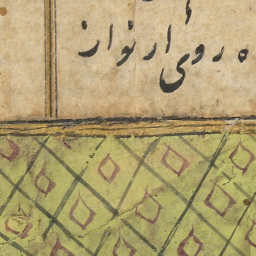 ه روی ارنواز